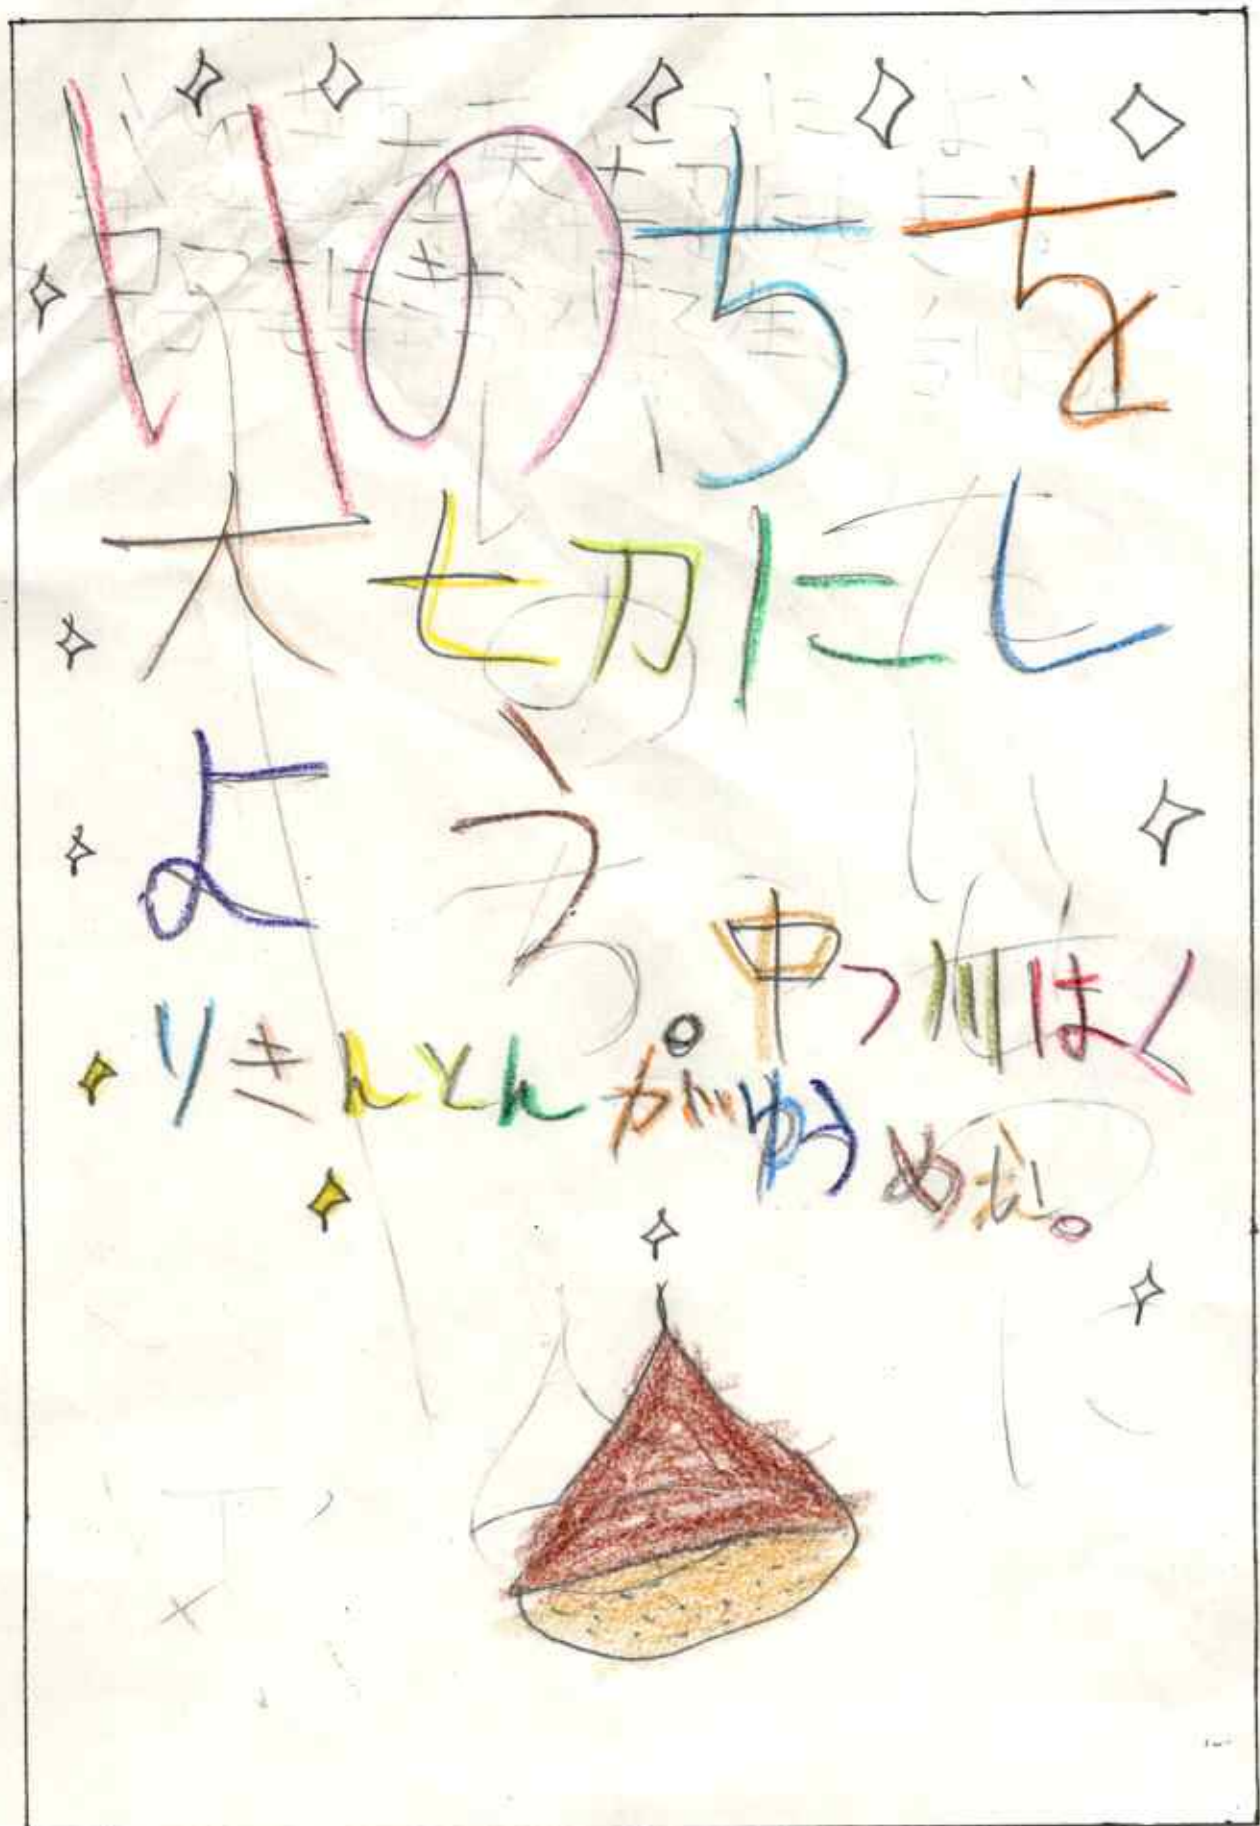 いのちを
大切にし
よう。中つ川はく
りきんとんがゆうめむ。